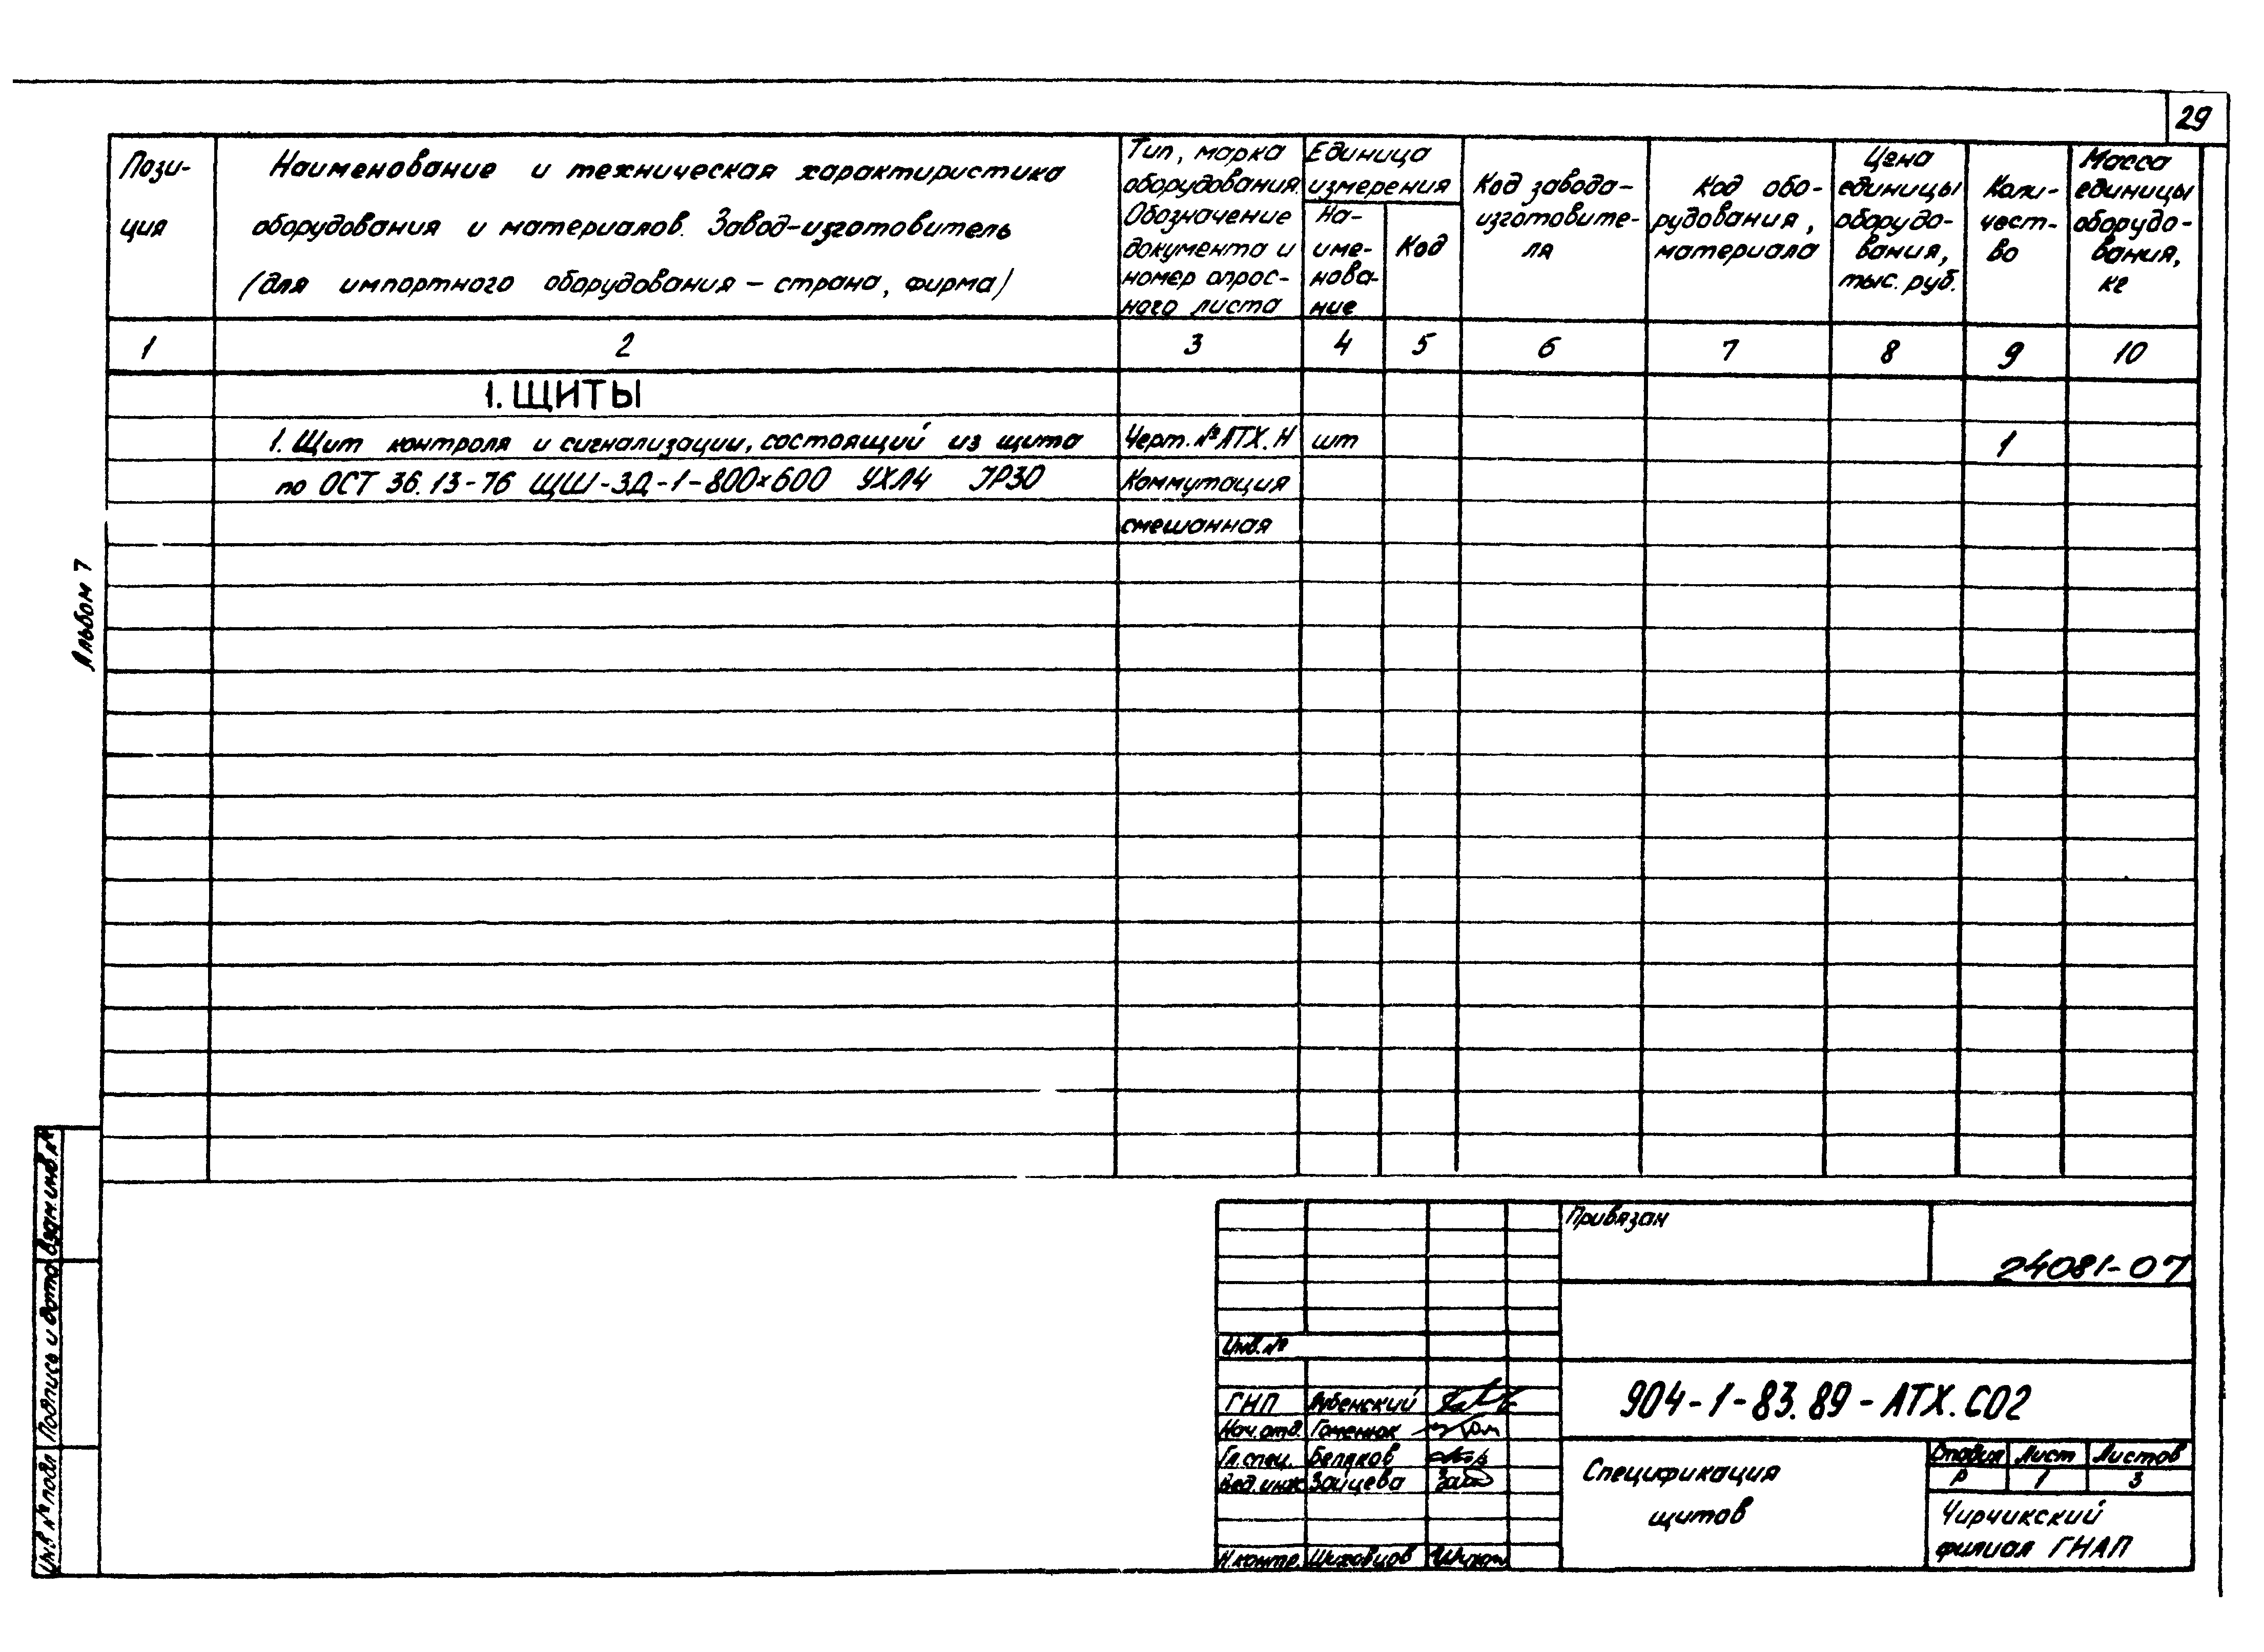 29
Пози-
ция
Наименование и техническая характиристика
оборудования и материалов. Завод-изготовитель
(для импортного оборудования – страна, фирма)
Тип, марка
оборудования.
Обозначение
документа и
номер опрос-
ного листа
Единица
измерения
На-
име-
нова-
ние
Код
Код завода-
изготовите-
ля
Код обо-
рудования,
материала
Цена
единицы
оборудо-
вания,
тыс. руб.
Коли-
чест-
во
Масса
единицы
оборудо-
вания,
кг
1 2 3 4 5 6 7 8 9 10
1. ЩИТЫ
1. Щит контроля и сигнализации, состоящий из щита Черт. №АТХ.Н шт 1
по ОСТ 36.13-76 ЩШ-ЗД-1-800×600 УХЛ4 JР30 Коммутация
смешанная
Альбом 7
Взам. инв. №
Подпись и дата
Инв № подл
Привязан
24081-07
Инв. №
904-1-83.89-АТХ.С02
ГНП
Нач. отд. Гоменюк
Гл. спец. Беляков
Вед. инж Зайцева
Н. контр. Шиховцов
Спецификация
щитов
Стадия Лист Листов
Р 1 3
Чирчикский
филиал ГНАП